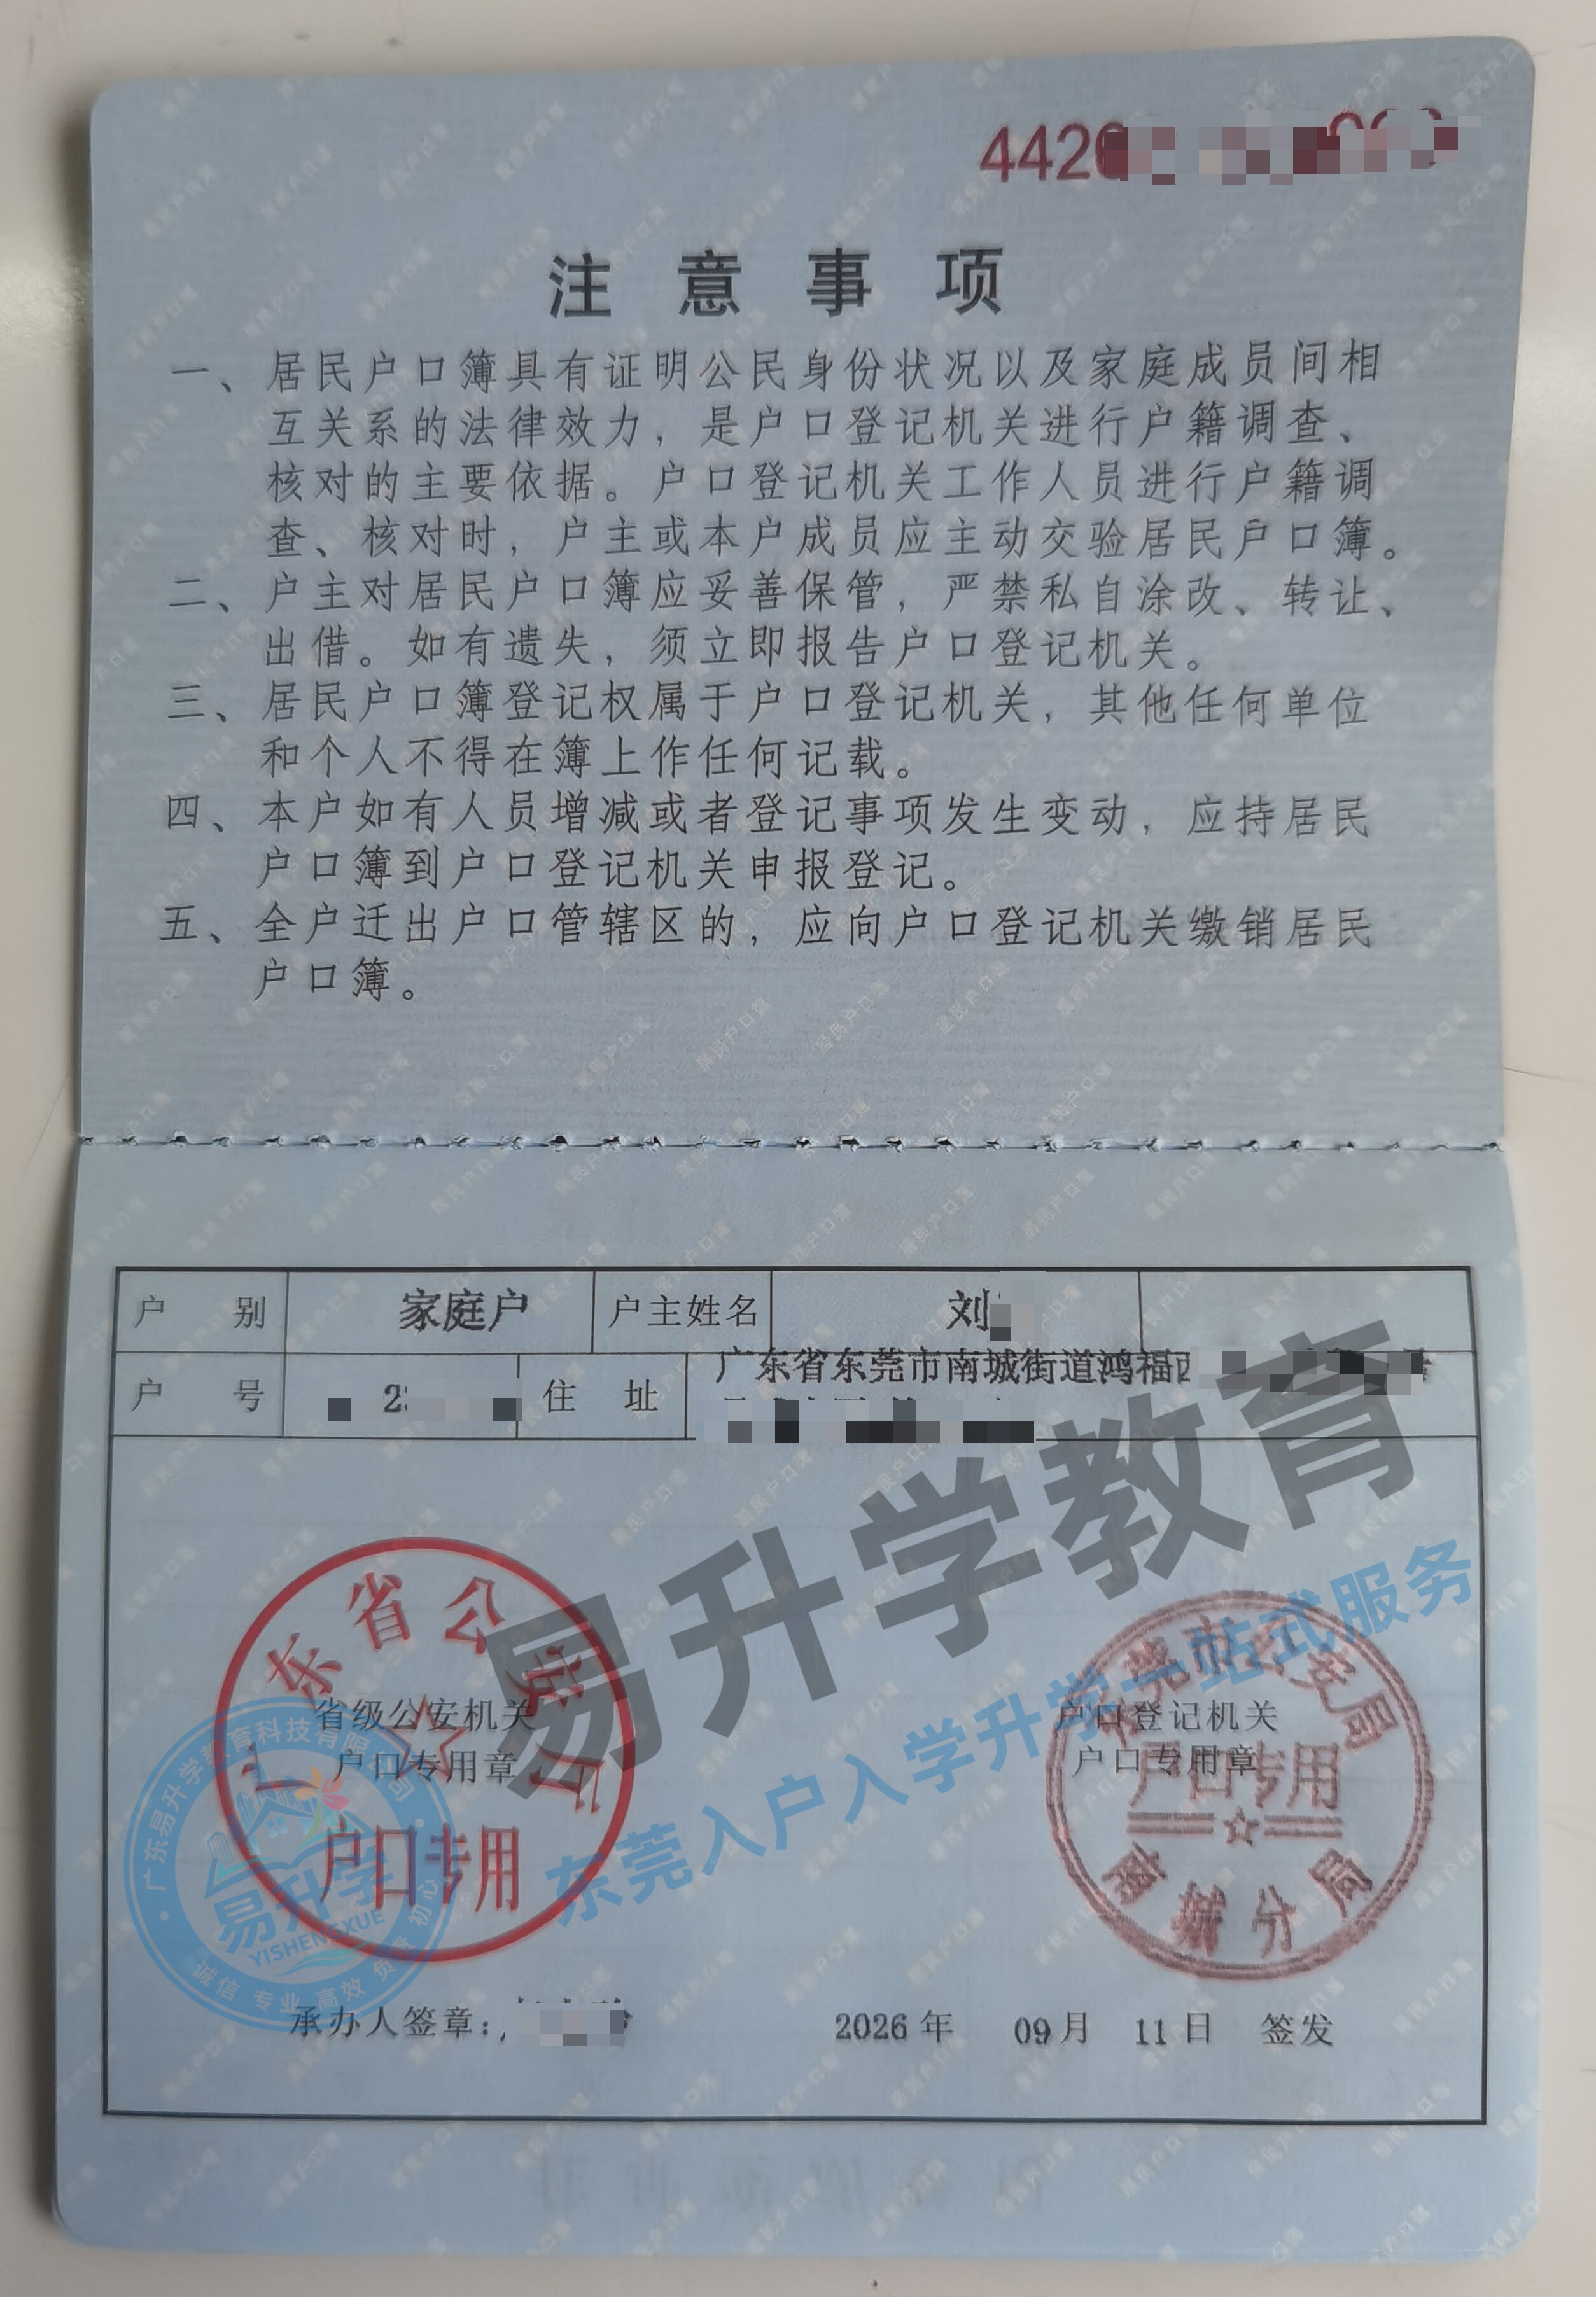 442
注意事项
一、居民户口簿具有证明公民身份状况以及家庭成员间相
互关系的法律效力，是户口登记机关进行户籍调查、
核对的主要依据。户口登记机关工作人员进行户籍调
查、核对时，户主或本户成员应主动交验居民户口簿。
二、户主对居民户口簿应妥善保管，严禁私自涂改、转让、
出借。如有遗失，须立即报告户口登记机关。
三、居民户口簿登记权属于户口登记机关，其他任何单位
和个人不得在簿上作任何记载。
四、本户如有人员增减或者登记事项发生变动，应持居民
户口簿到户口登记机关申报登记。
五、全户迁出户口管辖区的，应向户口登记机关缴销居民
户口簿。
户别 家庭户 户主姓名 刘
户号 2 住址 广东省东莞市南城街道鸿福
易升学教育
东莞入户入学升学一站式服务
广东省公安厅
省级公安机关
户口专用章
户口专用
东莞市公安局
户口登记机关
户口专用章
户口专用
南城分局
广东易升学教育科技有限公司
易升学
YISHENGXUE
诚信 专业 高效 负责 初心
承办人签章：
2026年 09月 11日 签发